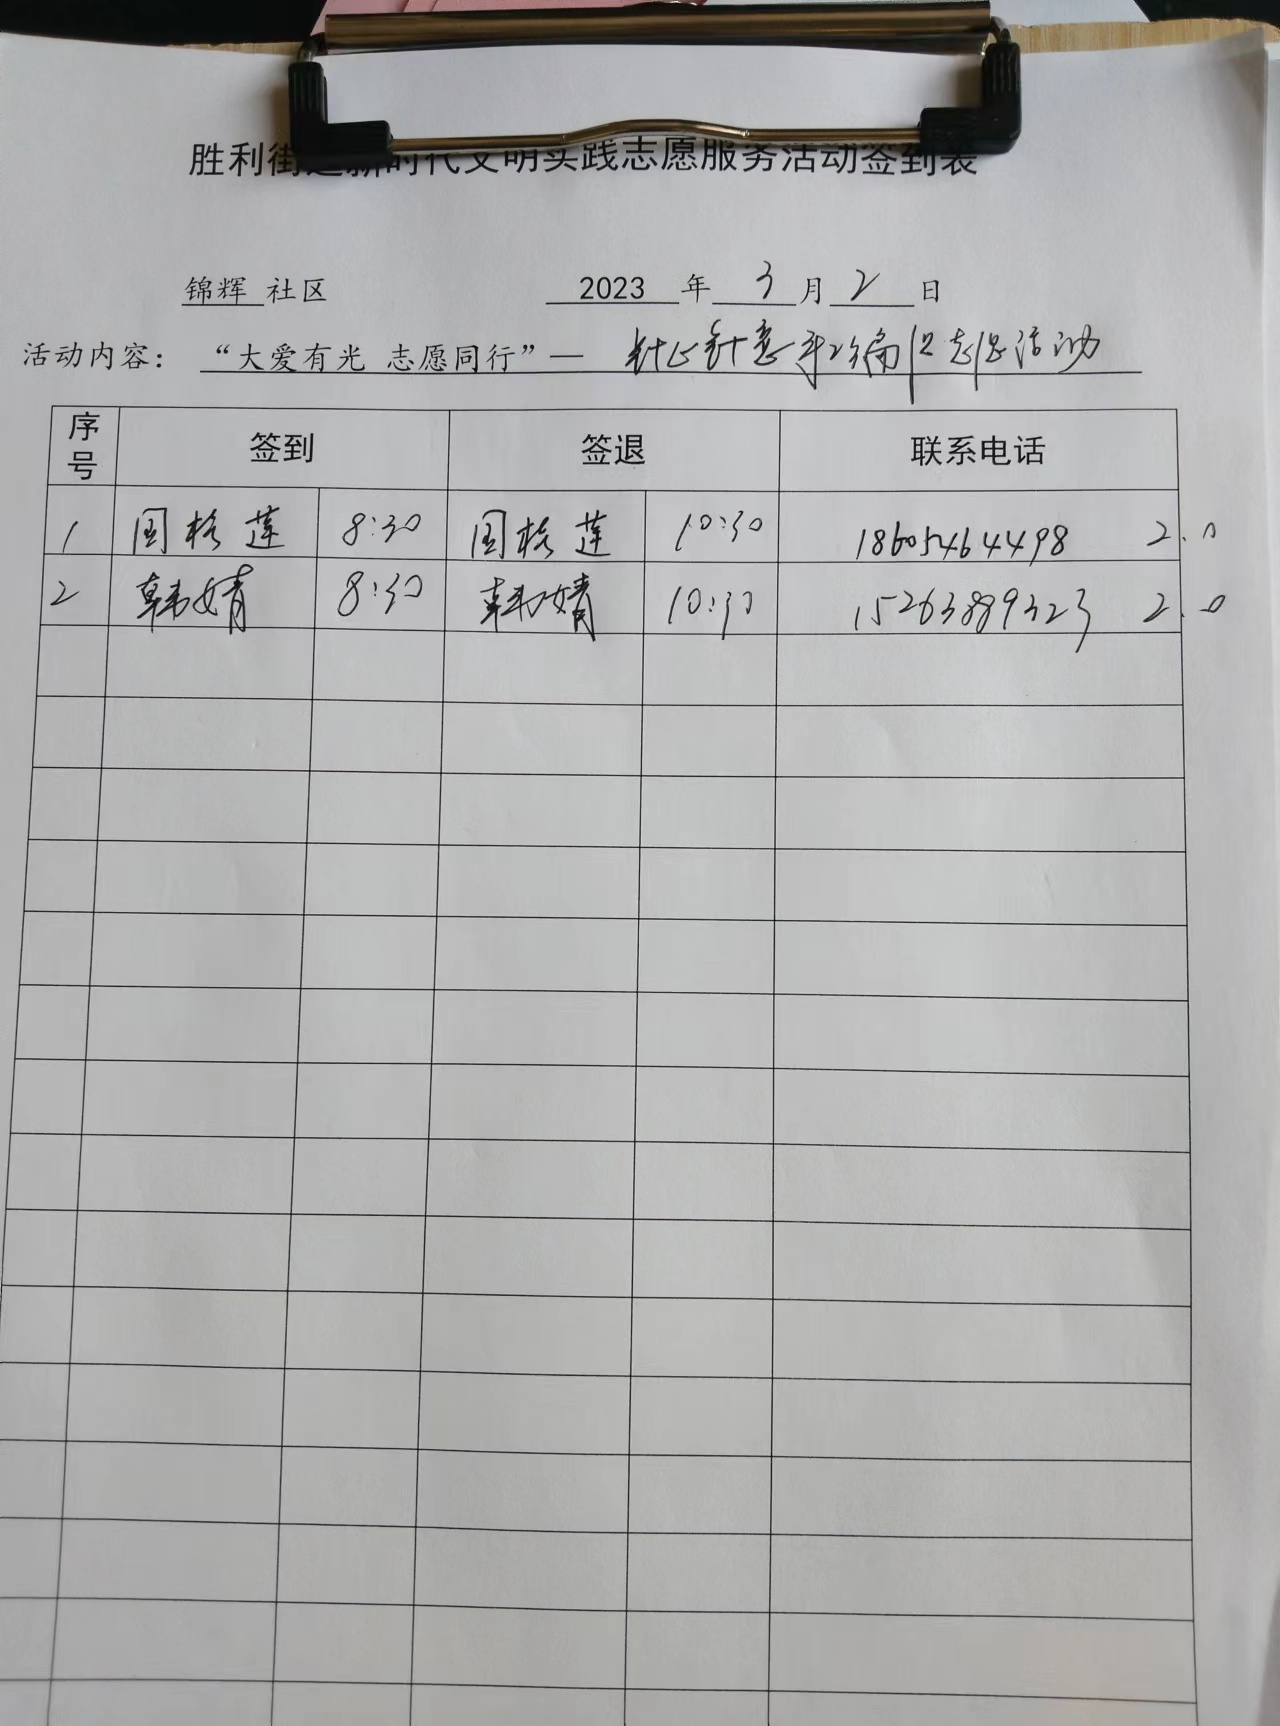 胜利街道新时代文明实践志愿服务活动签到表
锦辉 社区 2023 年 3 月 2 日
活动内容： “大爱有光 志愿同行”— 针心针意 手工编织志愿活动
序号 签到 签退 联系电话
1 国格莲 8:30 国格莲 10:30 18605464498 2.0
2 韩婧 8:30 韩婧 10:30 15263889323 2.0